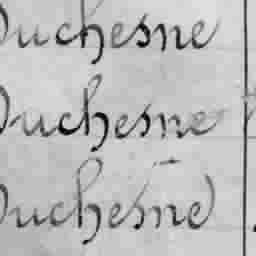 Duchesne
Duchesne
Duchesne